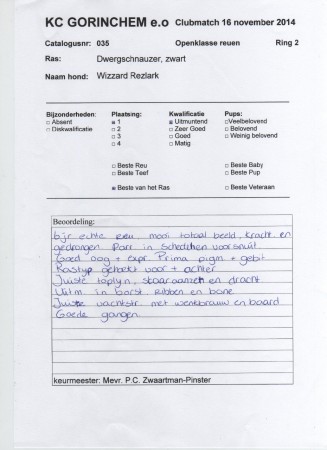 KC GORINCHEM e.o Clubmatch 16 november 2014
Catalogusnr: 035 Openklasse reuen Ring 2
Ras: Dwergschnauzer, zwart
Naam hond: Wizzard Rezlark
Bijzonderheden: Plaatsing: Kwalificatie Pups:
Absent 1 Uitmuntend Veelbelovend
Diskwalificatie 2 Zeer Goed Belovend
3 Goed Weinig belovend
4 Matig
Beste Reu Beste Baby
Beste Teef Beste Pup
Beste van het Ras Beste Veteraan
Beoordeling:
6jr echte reu, mooi totaal beeld, kracht en
gedrongen Parr in Schedel en voorsnuit
Goed oog + expr Prima pigm + gebit
Rastyp gehoekt voor + achter
Juiste toplyn, staartaanzet en dracht
Uitm in borst Ribben en bone
Juiste vachtstr. met wenkbrauw en baard
Goede gangen
keurmeester: Mevr. P.C. Zwaartman-Pinster